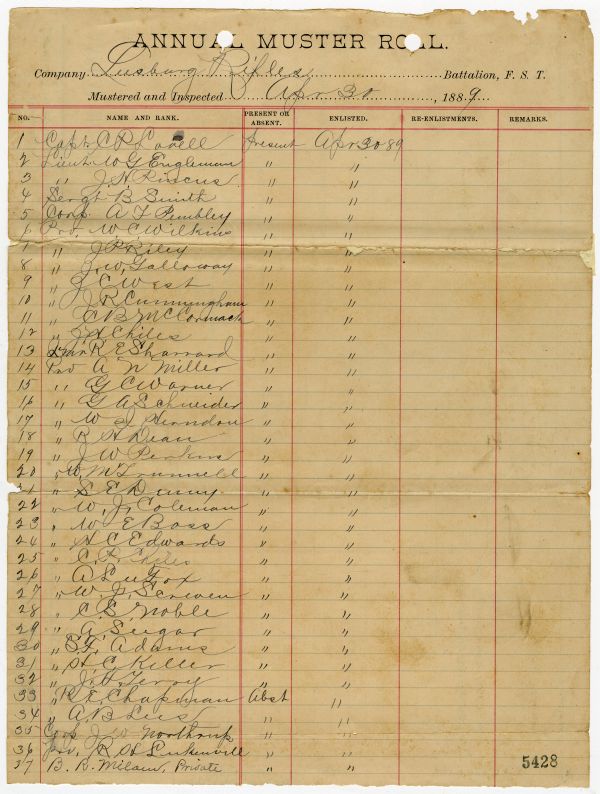 ANNUAL MUSTER ROLL.
Company Leesburg Rifles Battalion, F. S. T.
Mustered and Inspected Apr 30, 1889.
NO. NAME AND RANK. PRESENT OR ABSENT. ENLISTED. RE-ENLISTMENTS. REMARKS.
1 Capt. C P Lovell Present Apr 30 89
2 Lieut. W G Engleman " "
3 " J. H. Pincus " "
4 Sergt B Smith " "
5 Corp. A F Pembley " "
6 Prv. W C Wilkins " "
7 " J P Riley " "
8 " J. W. Galloway " "
9 " J C West " "
10 " J R Cunningham " "
11 " C B McCormack " "
12 " J H Chiles " "
13 R E Sharrard " "
14 Prv A N Miller " "
15 " G C Warner " "
16 " G A Schneider " "
17 " W J Herndon " "
18 " R H Dean " "
19 " J W Perkins " "
20 " W. M. Trunnell " "
21 " S E Denny " "
22 " W. J. Coleman " "
23 " W E Bass " "
24 " H C Edwards " "
25 " C. P. Chiles " "
26 " A Fox " "
27 " W. J. Screven " "
28 " C. S. Noble " "
29 " A. Seegar " "
30 " S. F. Adams " "
31 " H C Killer " "
32 " J. H. Terry " "
33 " R. E. Chapman Abst "
34 " A. B. Lee " "
35 Corp J. W. Northrup " "
36 Prv. R H " "
37 B. R. Milam, Private " "
5428